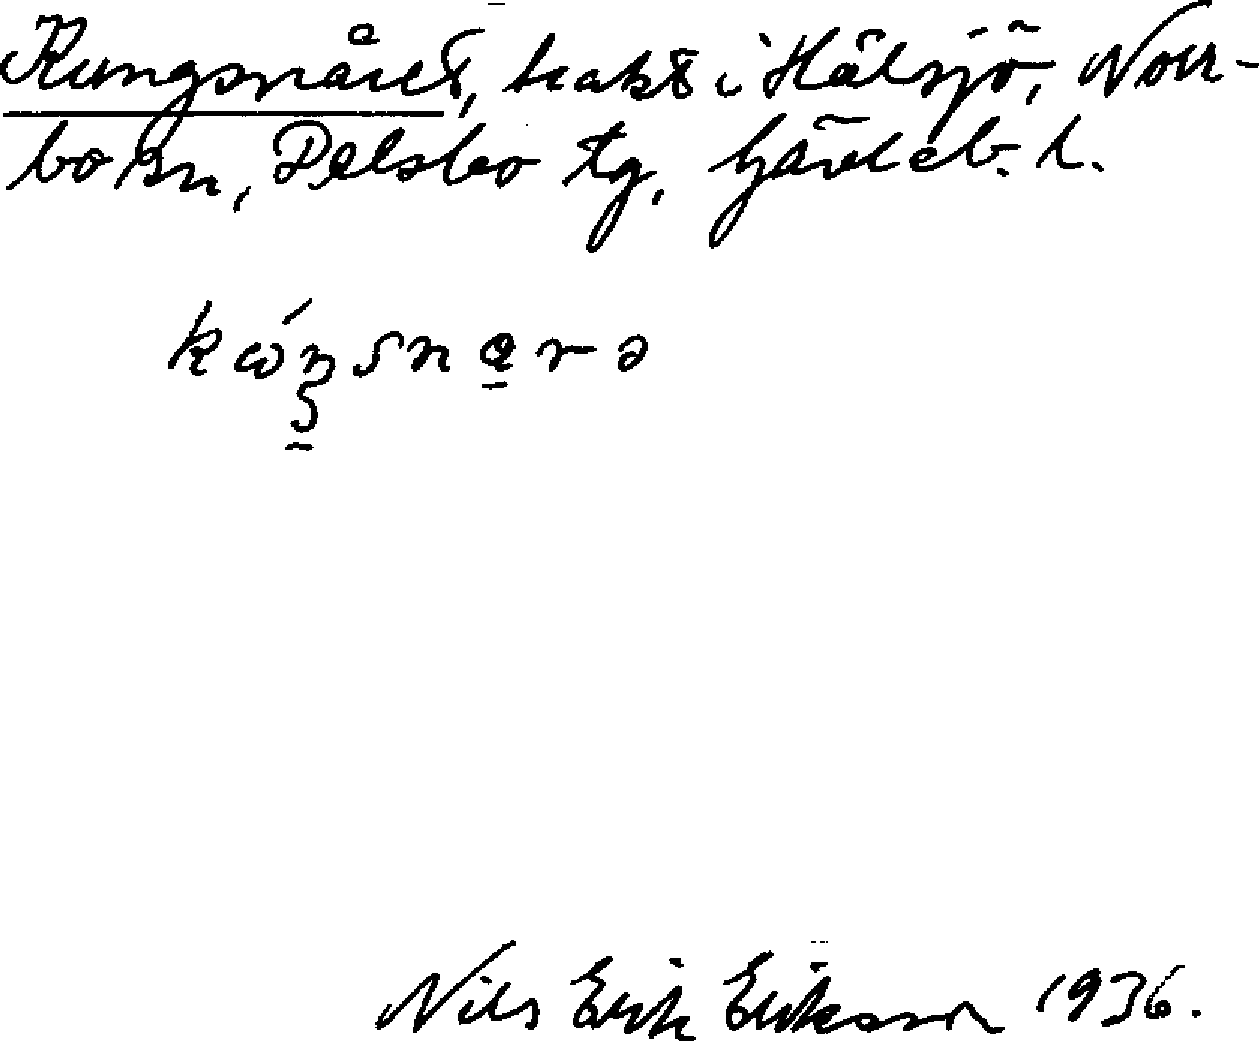 Kungsnåret, trakt i Hålsjö, Norr-
bo sn, Delsbo tg, Gävleb. l.
Nils Erik Eriksson 1936.